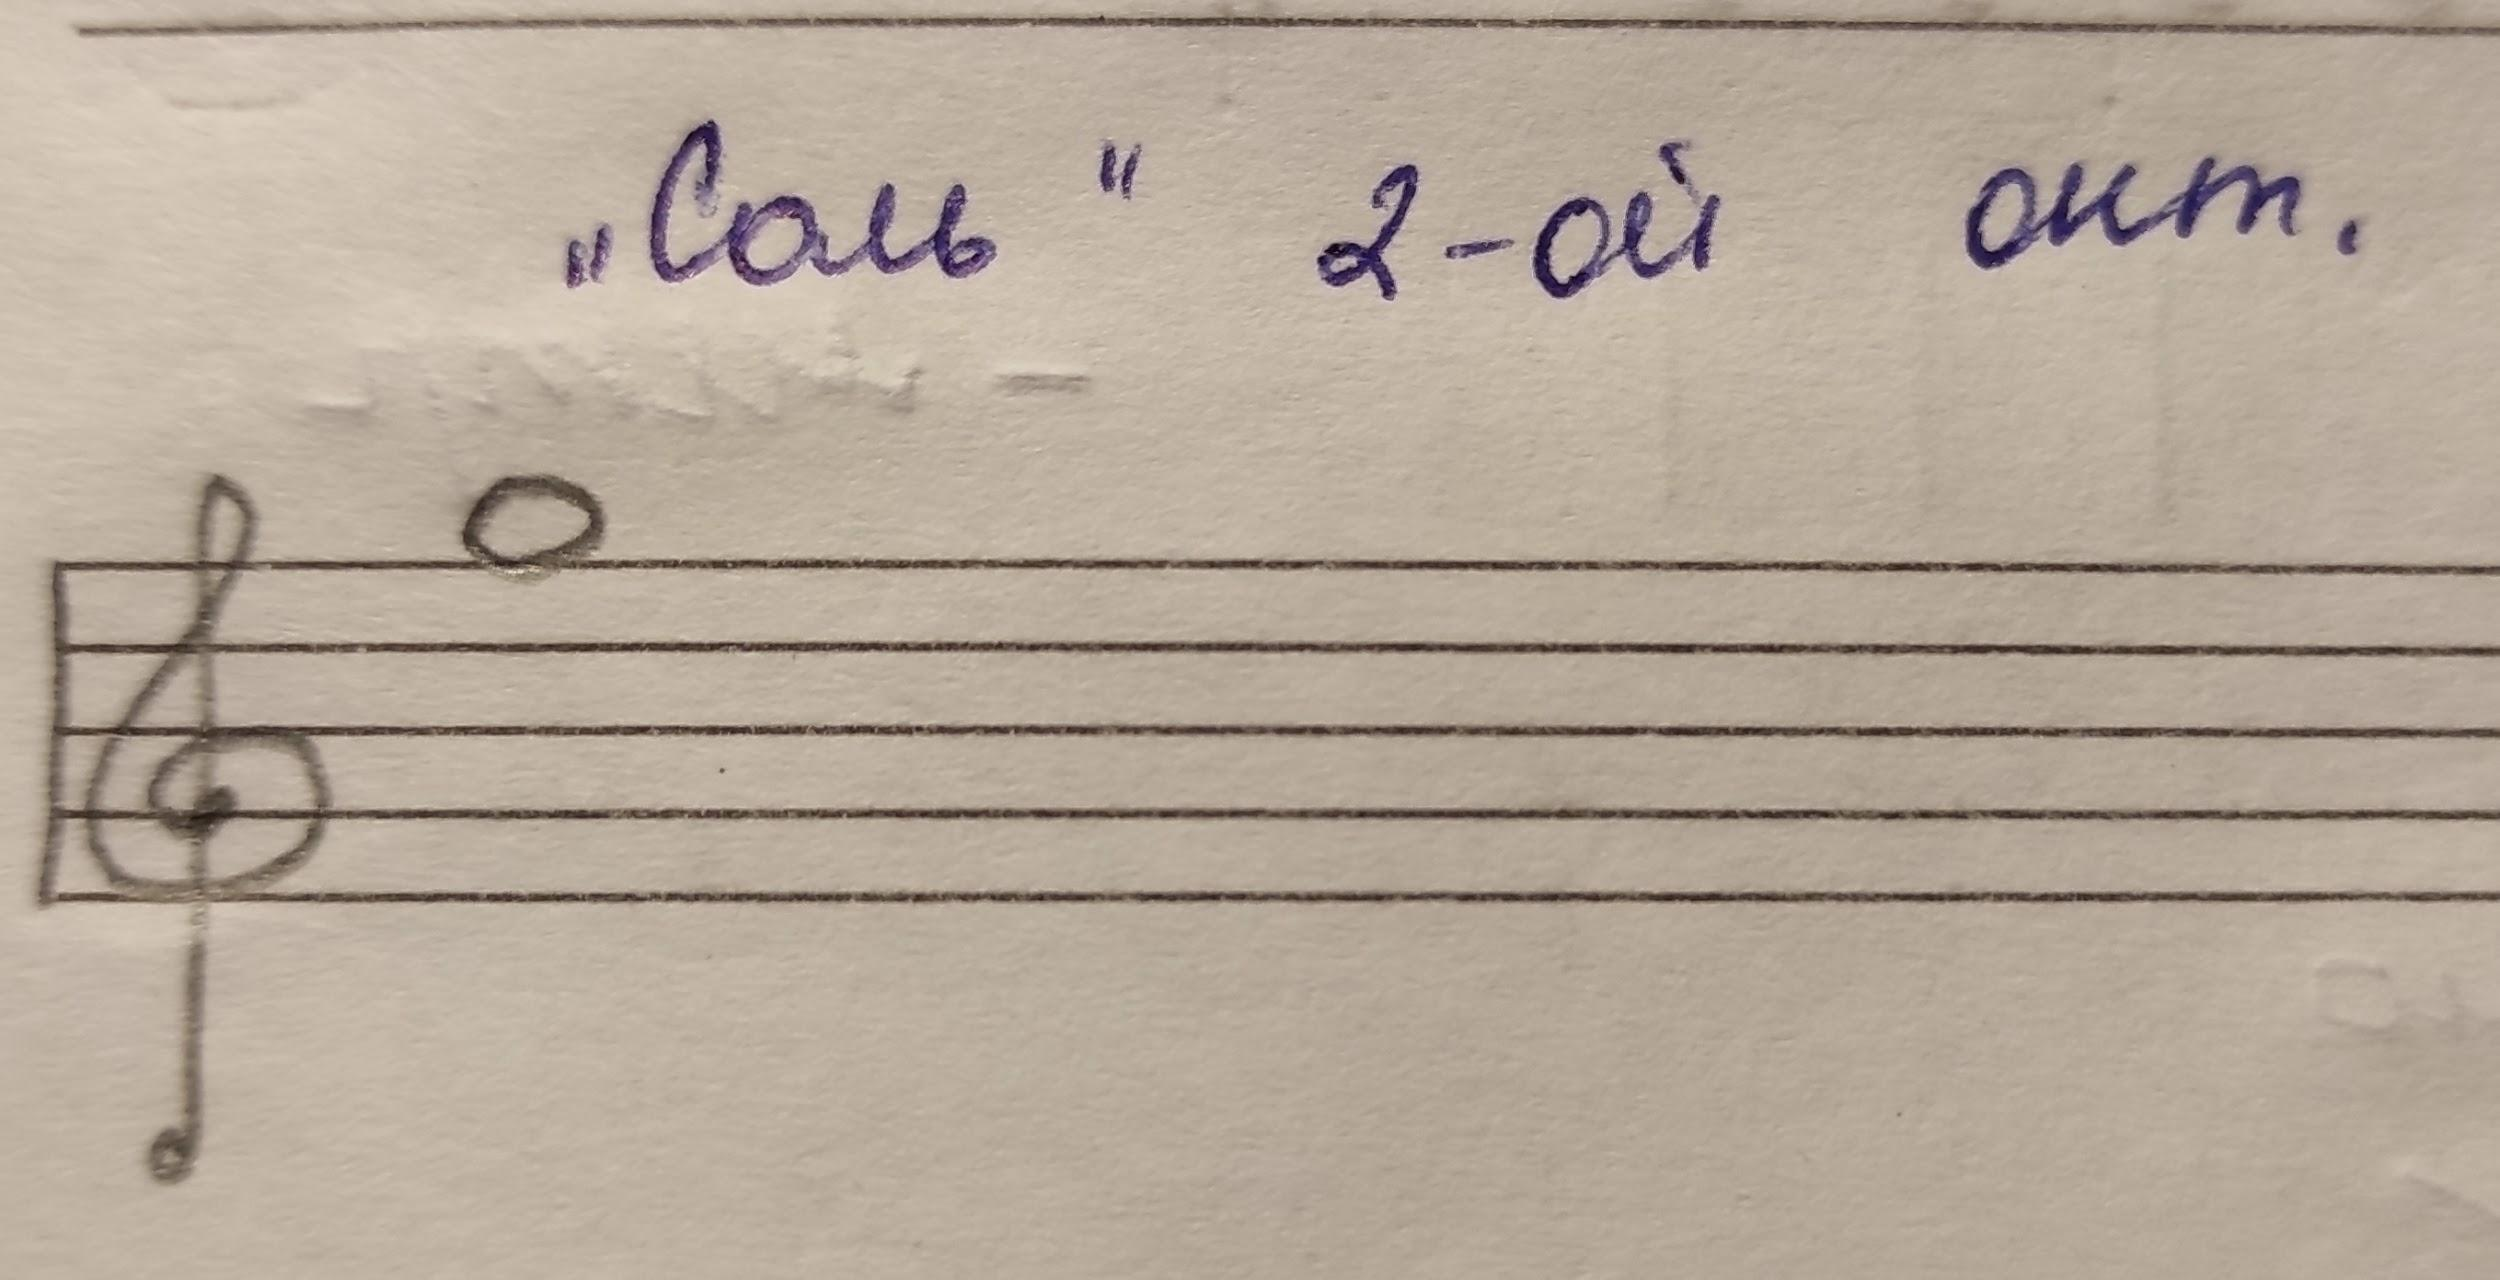 „Соль" 2-ой окт.